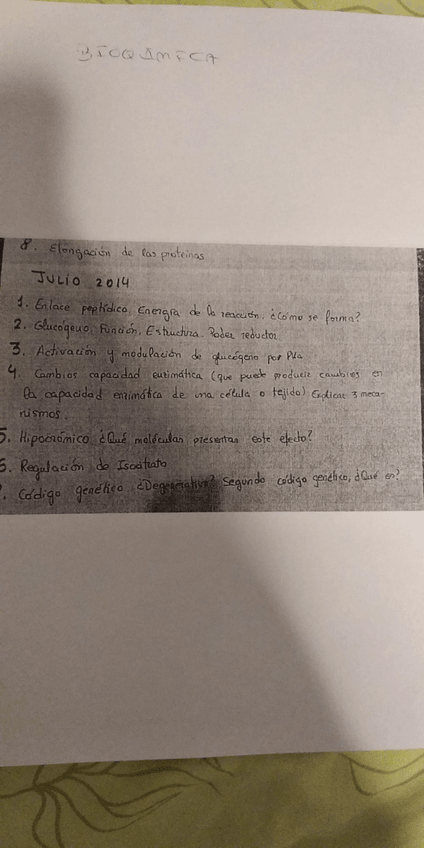 BIOQUIMICA
8. Elongación de las proteinas
JULIO 2014
1. Enlace peptídico, Energía de la reacción, ¿Cómo se forma?
2. Glucógeno. Función, Estructura. Poder reductor
3. Activación y modulación de glucógeno por
4. Cambios capacidad enzimática (que puede producir cambios en
la capacidad enzimática de una célula o tejido) Explicar 3 meca-
nismos.
5. Hipocrómico ¿Qué moléculas presentan este efecto?
6. Regulación de Isocitrato
. Código genético ¿Degenerativo? Segundo código genético, ¿Qué es?